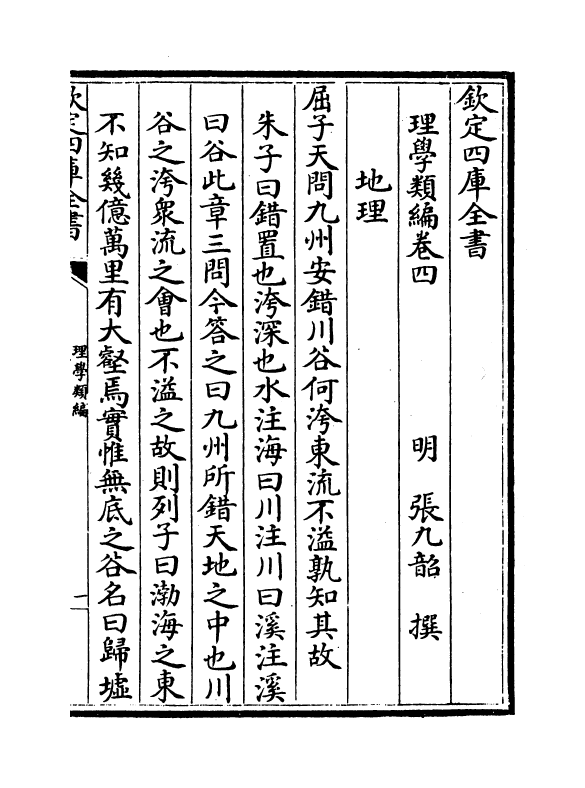 欽定四庫全書
理學類編卷四
明 張九韶 撰
地理
屈子天問九州安錯川谷何洿東流不溢孰知其故
朱子曰錯置也洿深也水注海曰川注川曰溪注溪
曰谷此章三問今答之曰九州所錯天地之中也川
谷之洿衆流之會也不溢之故則列子曰渤海之東
不知幾億萬里有大壑焉實惟無底之谷名曰歸墟
欽定四庫全書
理學類編
一